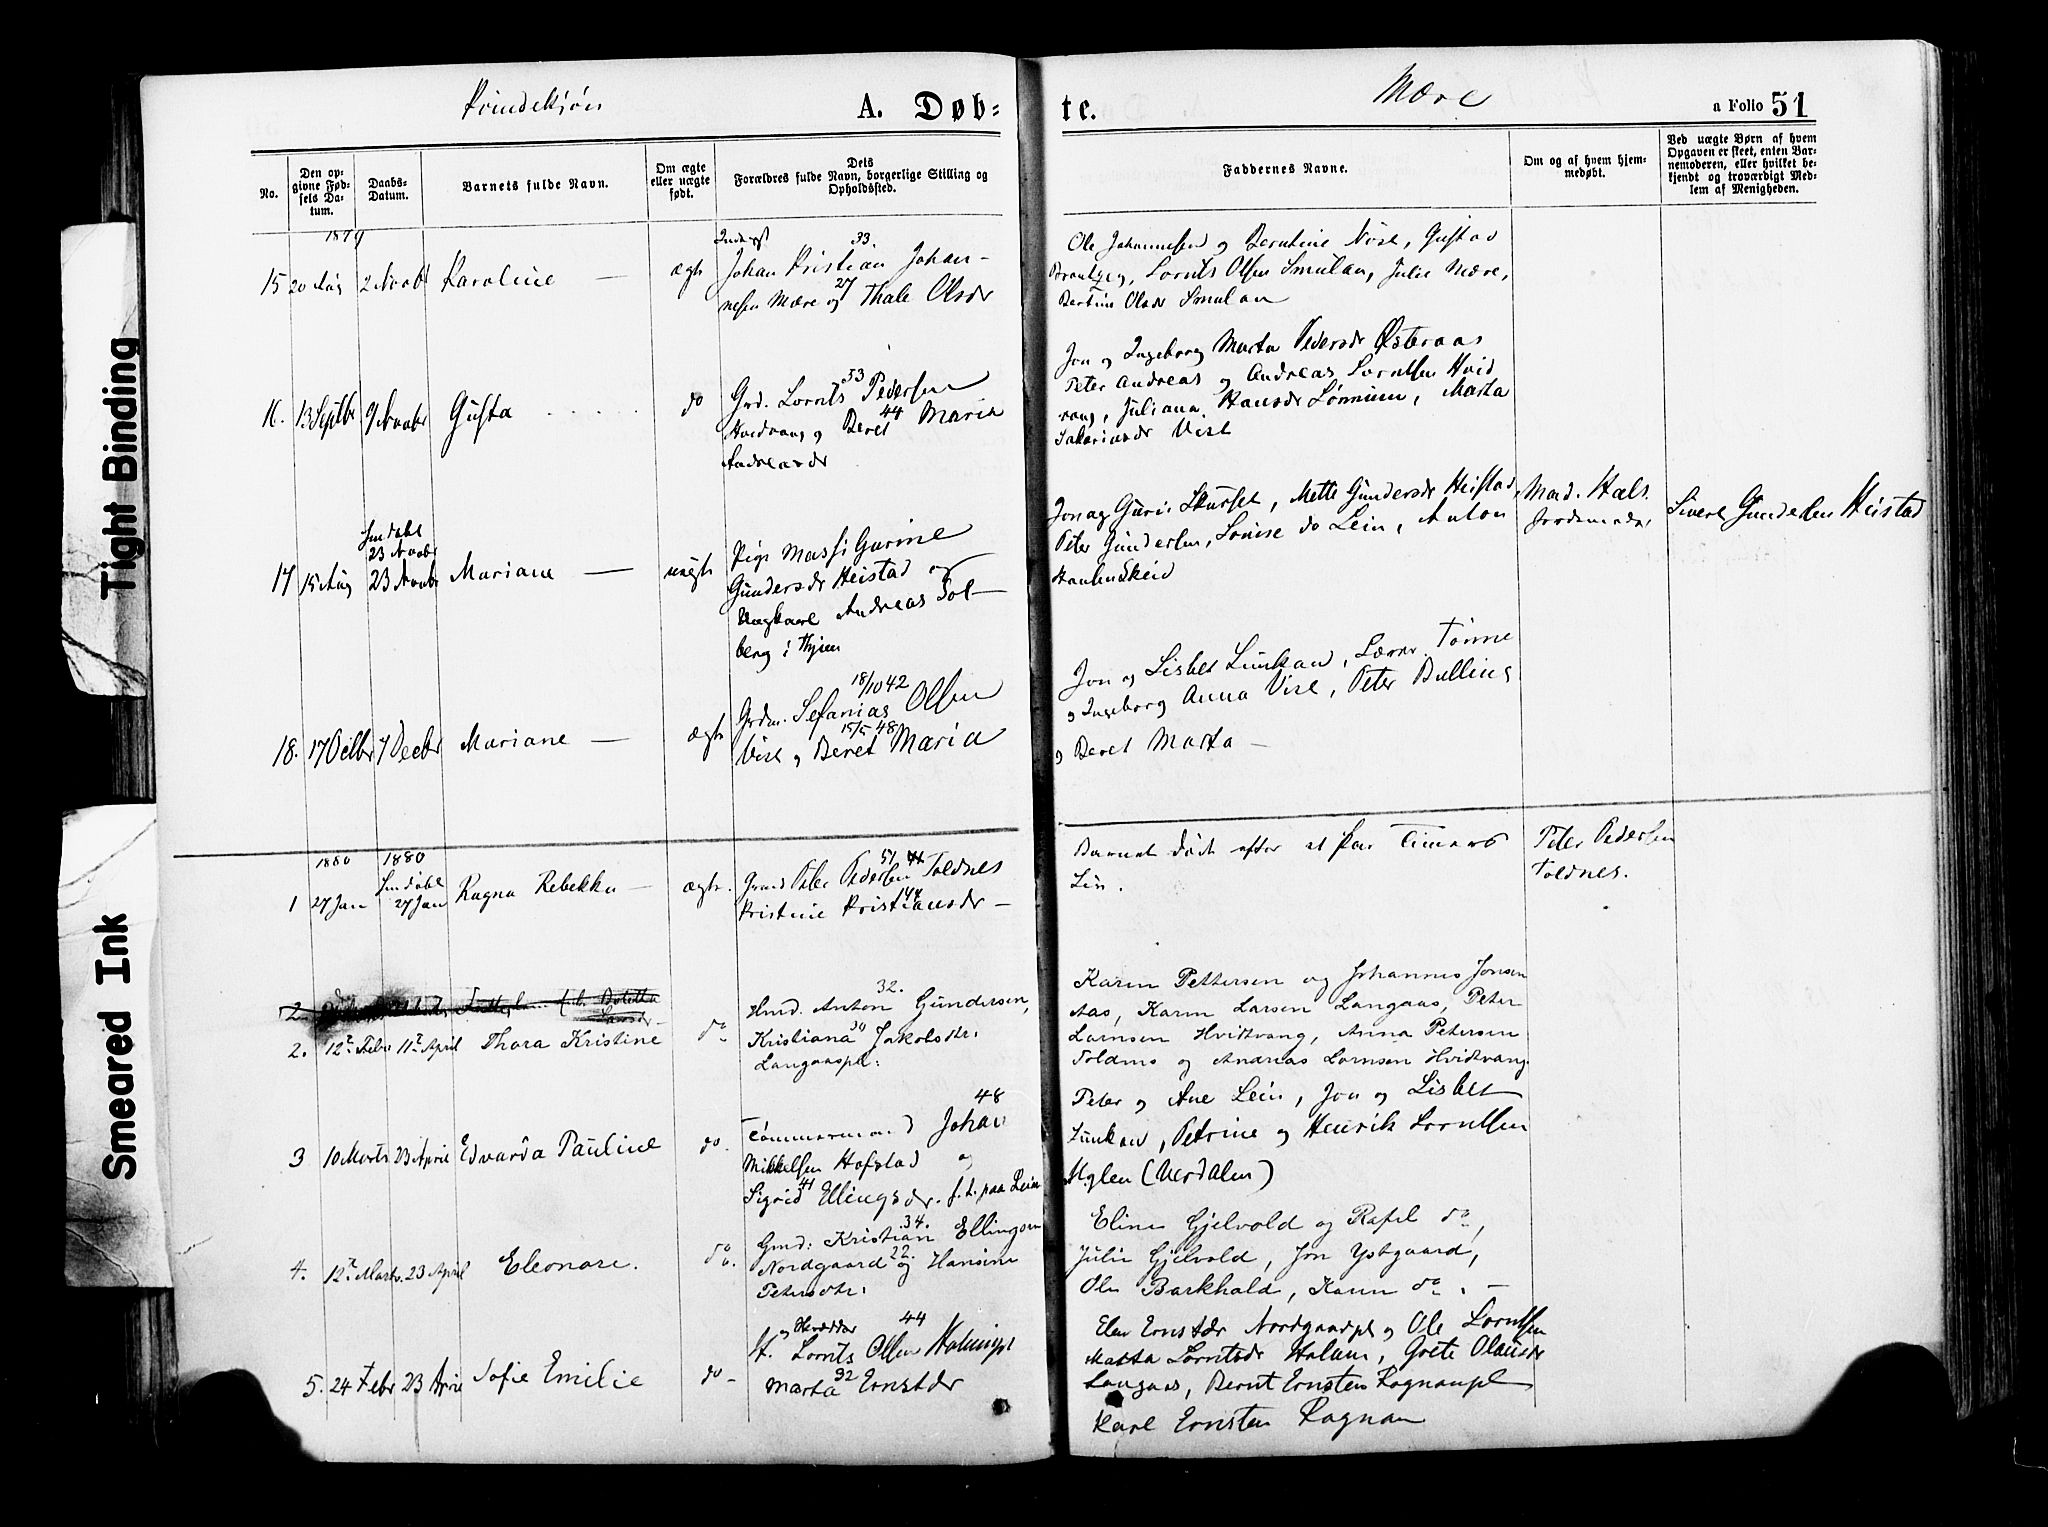 Kvindekjøn
A. Døb=
te.
Mære
a Folio 51
No.
Den op-
givne Fød-
sels Da-
tum.
Daabs-
Datum.
Barnets fulde Navn.
Om ægte
eller uægte
født.
Dets
Forældres fulde Navn, borgerlige Stilling og
Opholdssted.
Faddernes Navne.
Om og af hvem hjem-
medøbt.
Ved uægte Børn af hvem
Opgaven er skeet, enten Bar-
nemoderen, eller hvilket be-
kjendt og troværdigt Med-
lem af Menigheden.
1879
15 20 Aug 2 Novbr Karoline — ægte
33.
Johan Kristian Johan-
nesen Mære og 27 Thale Olsdr
Ole Johannesen og Berntine Vist, Gustav
Lornts Olsen Smulan, Julie Mære,
Bertine Olsdr Smulan
16. 13 Septbr 9 Novbr Gusta do
Grd. Lornts 33 Pedersen
Hvidvang og Beret 44 Maria
Andreasdr
Jon og Ingeborg Marta Pedersdr Østeraas
Peter Andreas og Andreas Lorntsen Hvid
vang, Juliana Hansdr Lønnum, Marta
Vist
17 15 Aug
hmdøbt
23 Novbr
23 Novbr Mariane — uægte
Pige Massi Gurine
Gundersdr Heistad og
Ungkarl Andreas Sol-
berg i
Jon og Guri Skurset, Mette Gundersdr Heistad,
Peter Gundersen, Louise do Lein, Anton
Skeid
Mad. Hals
Jordemoder
Sivert Gundersen Heistad
18. 17 Octbr 7 Decbr Mariane — ægte
18/10 42
Grdm. Sefanias Olsen
15/5 48
Vist og Beret Maria
Jon og Lisbet Lunkan, Lærer Tønne
og Ingeborg Anna Vist, Peter Belling
og Beret Marta —
1880 1880
1 27 Jan
hmdøbt
27 Jan Ragna Rebekka — ægte.
51 44
Grmd Peter Pedersen Toldnes
Kristine Kristiansdr —
Barnet døde efter et Par Timers
Liv.
Peter Pedersen
Toldnes.
2.
2. 12te Febr 11te April Thora Kristine do
32.
Hmd. Anton Gundersen,
Kristiana 30 Jakobsdtr:
Langaaspl:
Karen Pettersen og Johannes Jonsen
Aas, Karen Larsen Langaas, Peter
Larnsen Hvidvang, Anna Petersen
Toldnes og Andreas Larnsen Hvidvang
3 10 Marts 23 April Edvarda Pauline do.
48
Tømmermand Johan
Mikkelsen Hofstad og
Sigrid 41 Ellingsdr. f. t. paa Lein
Peter og Ane Lein, Jon og Lisbet
Lunkan, Petrine og Henrik Lorntsen
Uglen (Verdalen)
4. 12te Marts 23 April Eleonore. do.
34.
Gmd: Kristian Ellingsen
Nordgaard 22. og Hansine
Petersdtr:
Eline Gjelvold og Rafel do,
Julie Gjelvold, Jon Ystgaard,
Ole Barkhald, Karen do. —
5. 24 Febr 23 April Sofie Emilie do -
og Skrædder 44
St. Lornts Olsen
Marta 32 Ernstdr
Elen Ernstdr Nordgaardpl og Ole Lorntsen
Marta Lorntsdr Holum, Grete Olausdr
Langaas, Bernt Ernsten Rognanpl
Karl Ernsten Rognan
Tight Binding
Smeared Ink